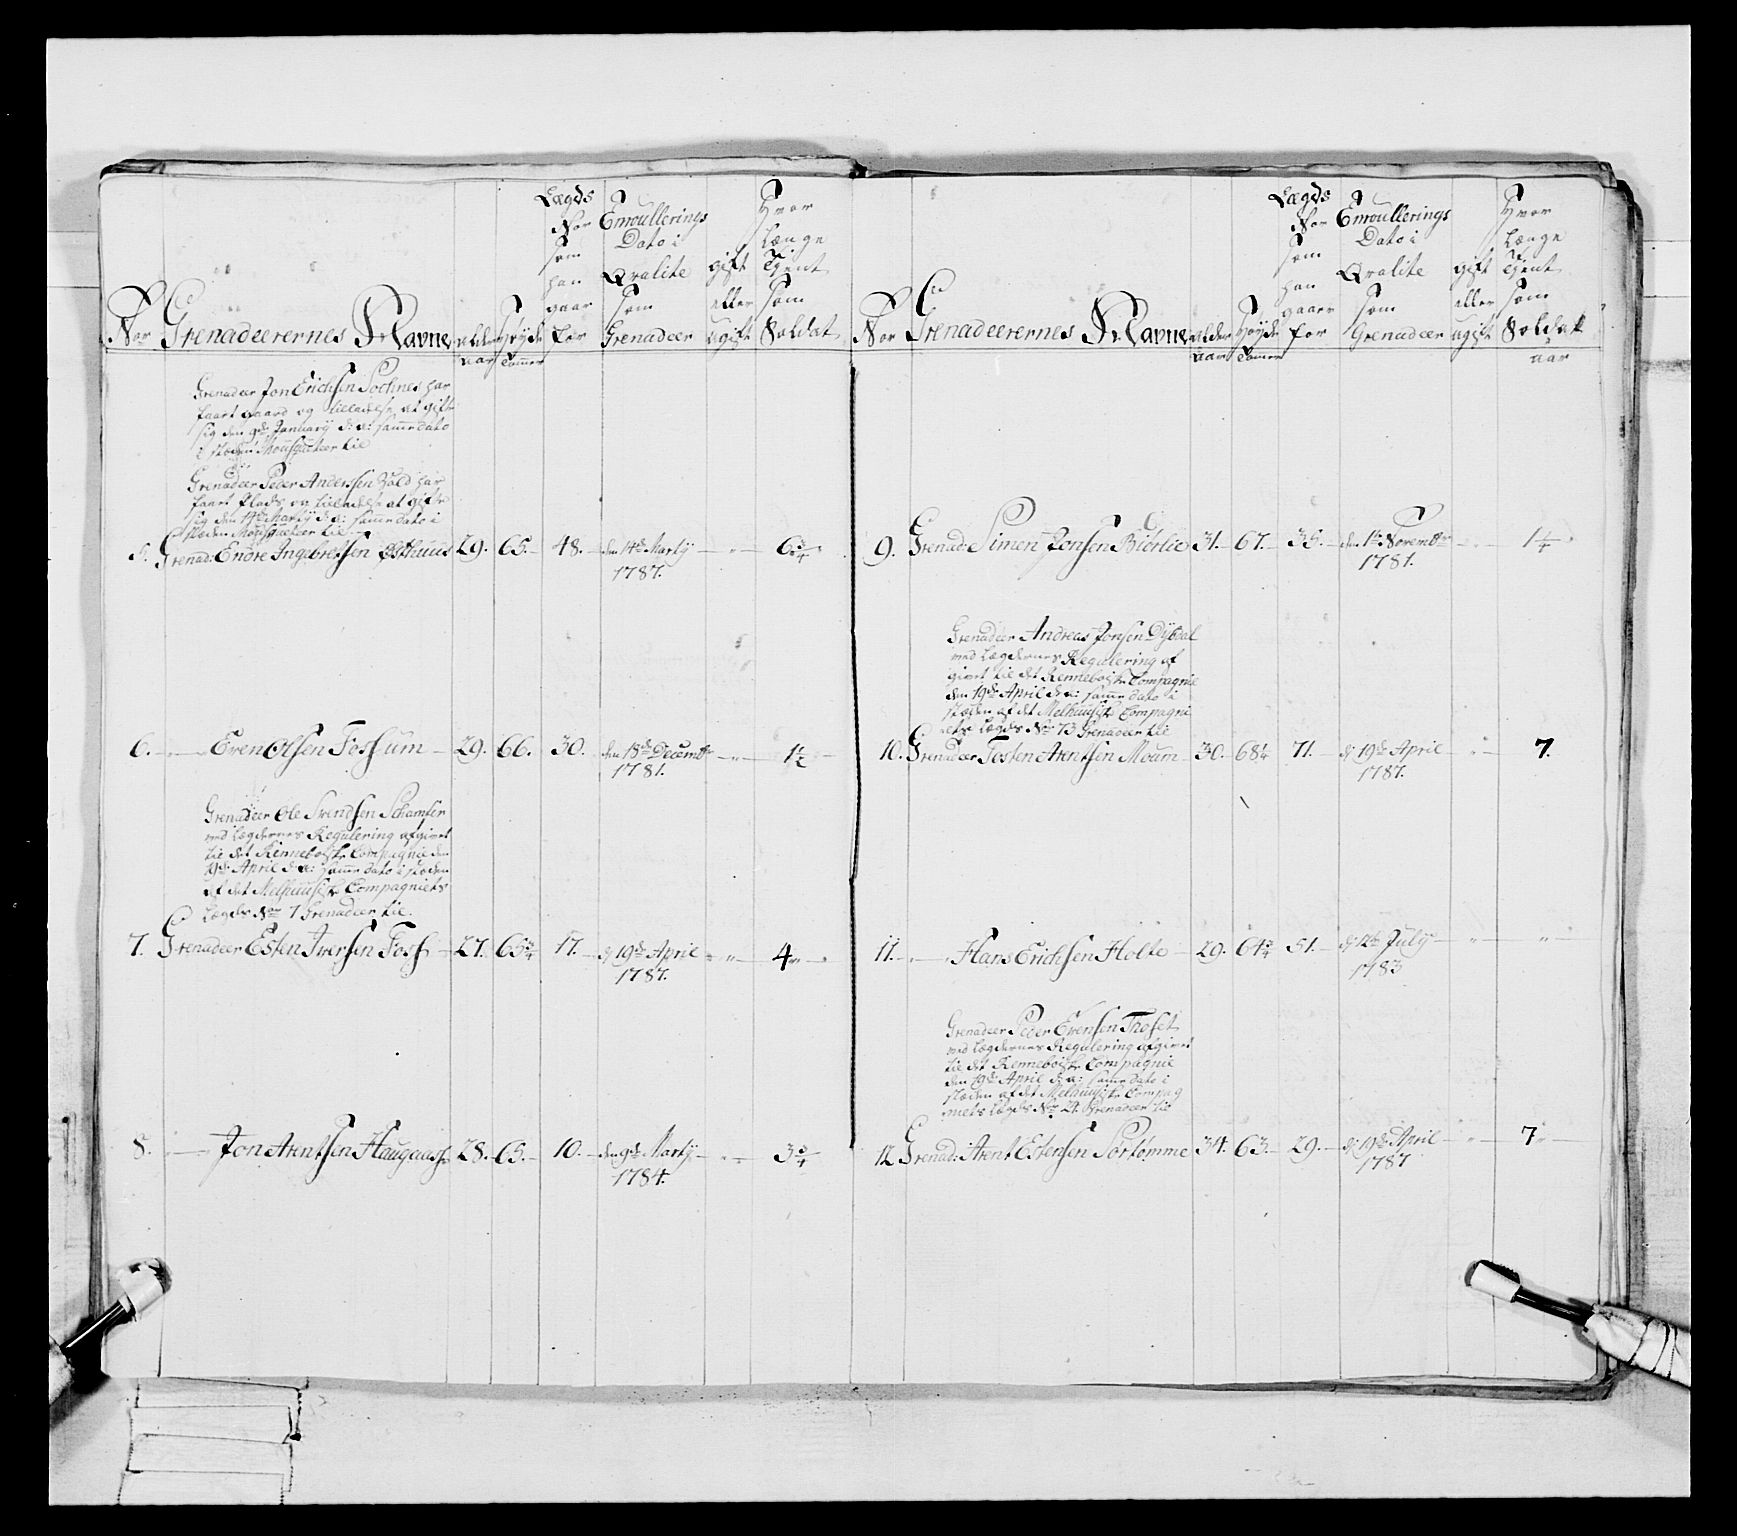 Nor Grenadeerernes Navne alder aar høyde tommer Lægds Nor som han gaar for Enroullerings Dato i Qvalite som Grenadeer gift eller ugift Hvor længe tient som Soldat
Grenadeer Jon Erichsen Sochnes har
faaet gaard og tilladelse at gifte
sig den 9de January d: a: samme dato
i stæden Mousqueteer til
Grenadeer Peder Anderssen Vold har
faaet Plads og tilladelse at gifte
sig den 14de Marty d: a: samme dato i
stæden Mousqueteer til
5. Grenad: Endre Ingebretsen Østhuus 29. 65. 48. den 14de Marty 6 3/4
1787.
6. Even Olsen Fossum 29. 66. 30. den 18de Decembr 1 1/2
1781.
Grenadeer Ole Svendsen Schamfer
ved Lægdernes Regulering afgivet
til det Renneboiske Compagnie den
19de April d: a: samme dato i stæden
af det Melhuusiske Compagniets
Lægds Nor 7 Grenadeer til.
7. Grenadeer Esten Iversen Foss 27. 65 3/4 17. dj 19de April 4
1787.
8. Jon Arentsen Haugaas 28. 65. 10. den 9de Marty 3 3/4
1784.
Nor Grenadeerernes Navne alder aar høyde tommer Lægds Nor som han gaar for Enroullerings Dato i Qvalite som Grenadeer gift eller ugift Hvor længe tient som Soldat aar
9. Grenad: Simen Jonsen Biørlie 31. 67. 35. den 1te Novembr 1 1/4
1781.
Grenadeer Andreas Jonsen Dybdal
ved Lægdernes Regulering af
givet til det Renneboiske Compagnie
den 19de April d: a: samme dato i
stæden af det Melhuusiske Compagni
ets Lægds Nor 73 Grenadeer til
10. Grenadeer Tosten Arentsen Moum 30. 68 1/4 71. dj 19de April 7.
1787.
11. Hans Erichsen Holte 29. 64 3/4 51. dj 12te July
1783
Grenadeer Peder Evensen Troset
ved Lægdernes Regulering afgivet
til det Renneboiske Compagnie
den 19de April d: a: samme dato i
stæden af det Melhuusiske Compag
niets Lægds Nor 21. Grenadeer til
12. Grenad: Arent Estensen Sørtømme 34. 63. 29. dj 19de April 7
1787